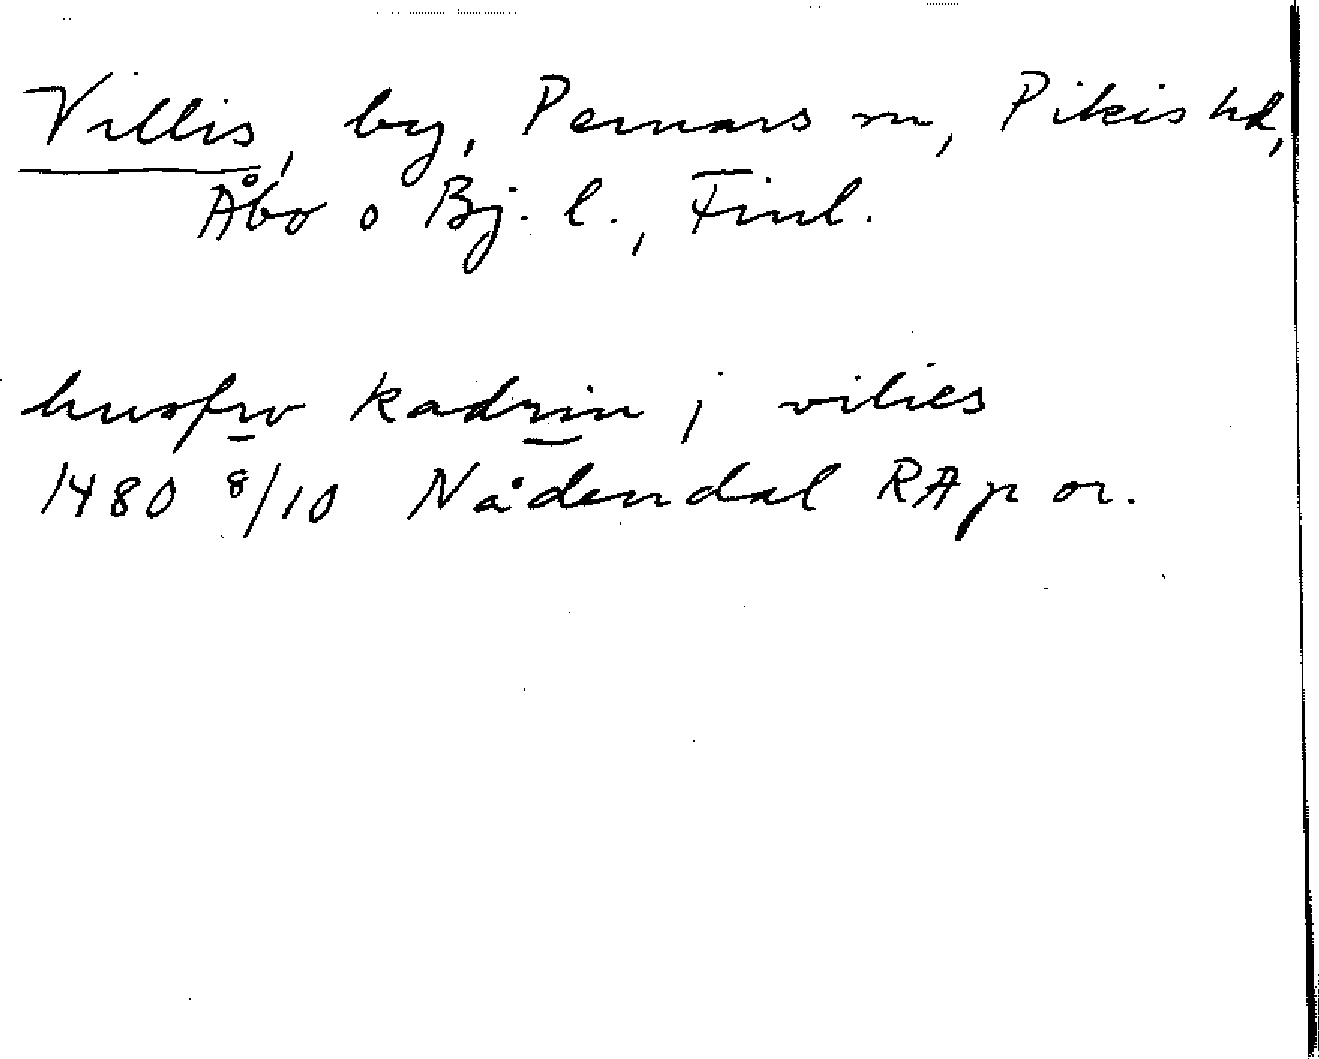 Villis, by, Pemars sn, Pikis hd,
Åbo o Bj. l., Finl.
husfrv kadrin j vilies
1480 8/10 Nådendal RAp or.